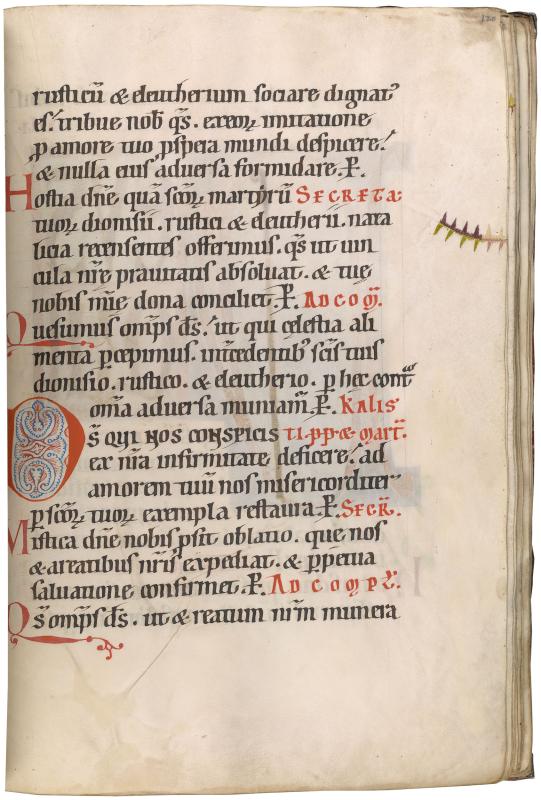 rusticū & eleutherium sociare dignat᾽
es. tribue nob̄ q̄s. eorꝫ imitatione
ꝓ amore tuo ꝓspera mundi despicere.
& nulla eius aduersa formidare. P̄.
Hostia dn̄e quā scōꝝ martyrū SECRETA:
tuoꝝ dionisii. rustici & eleutherii. nata
licia recensentes offerimus. q̄s ut uin
cula nr̄e prauitatis absoluat. & tue
nobis mīe dona conciliet. P̄. AD COM̄.
Quesumus omp̄s d̄s. ut qui celestia ali
menta ꝑcepimus. int̄cedentib᾽ scīs tuis
dionisio. rustico. & eleutherio. ꝑ hec cont᾽
omīa aduersa muniam̄. P̄. KALIS
D̄S QUI NOS CONSPICIS TI. P.P. & mart̄.
ex nr̄a infirmitate deficere. ad
amorem tuū nos misericordit᾽
ꝑ scōꝝ tuoꝝ exempla restaura. P̄. SECR̄.
Mistica dn̄e nobis ꝓsit oblatio. que nos
& a reatibus nr̄is expediat. & ꝑpetua
saluatione confirmet. P̄. AD COMPL̄.
Q̄s omp̄s d̄s. ut & reatum nr̄m munera